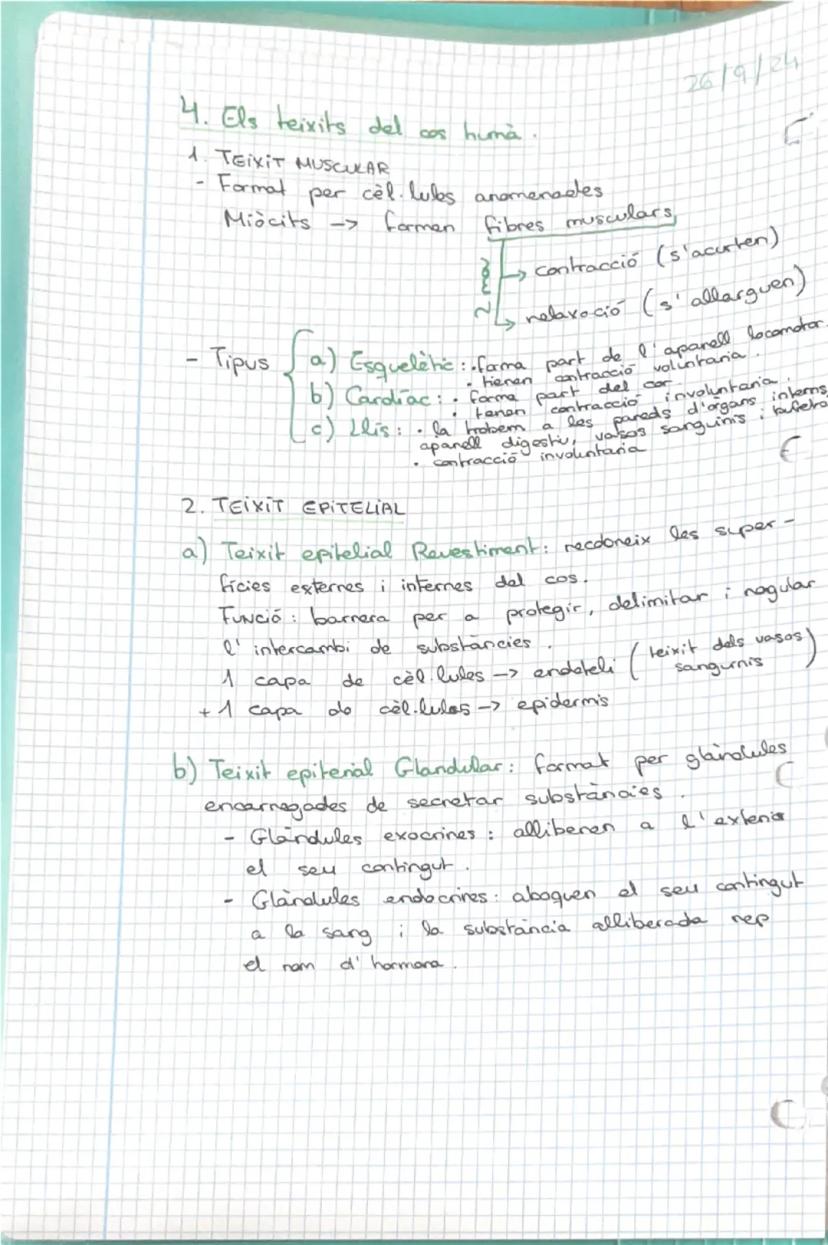 26/9/24
4. Els teixits del cos humà.
1. TEIXIT MUSCULAR
- Format per cèl·lules anomenades
Miòcits -> formen fibres musculars
-> contracció (s'acurten)
-> relaxació (s'allarguen)
- Tipus
a) Esquelètic: · forma part de l'aparell locomotor.
· tienen contracció voluntaria.
b) Cardíac: · forma part del cor.
· tenen contracció involuntaria.
c) Llis: · la trobem a les pareds d'òrgans interns,
aparell digestiu, vasos sanguinis i
· contracció involuntaria
2. TEIXIT EPITELIAL
a) Teixit epitelial Revestiment: recobreix les super-
fícies externes i internes del cos.
FUNCIÓ: barrera per a protegir, delimitar i regular
l'intercambi de substàncies.
1 capa de cèl·lules -> endoteli (teixit dels vasos
sangunis)
+ 1 capa de cèl·lules -> epidermis
b) Teixit epiterial Glandular: format per glàndules
encarregades de secretar substàncies.
- Glàndules exocrines: alliberen a l'exterior
el seu contingut.
- Glàndules endocrines: aboquen el seu contingut
a la sang i la substància alliberada rep
el nom d'hormona.